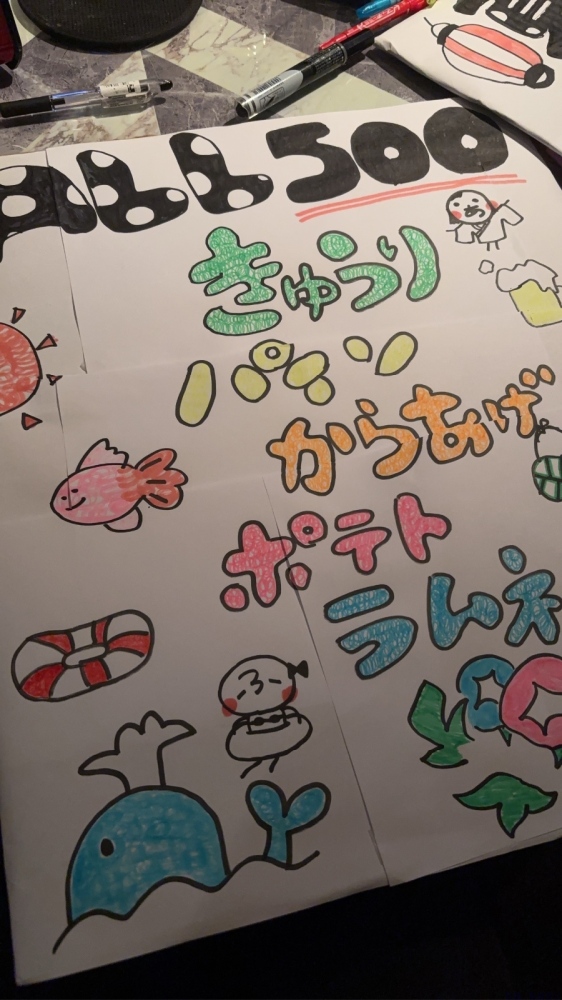 ALL 500
きゅうり
パイン
からあげ
ポテト
ラムネ